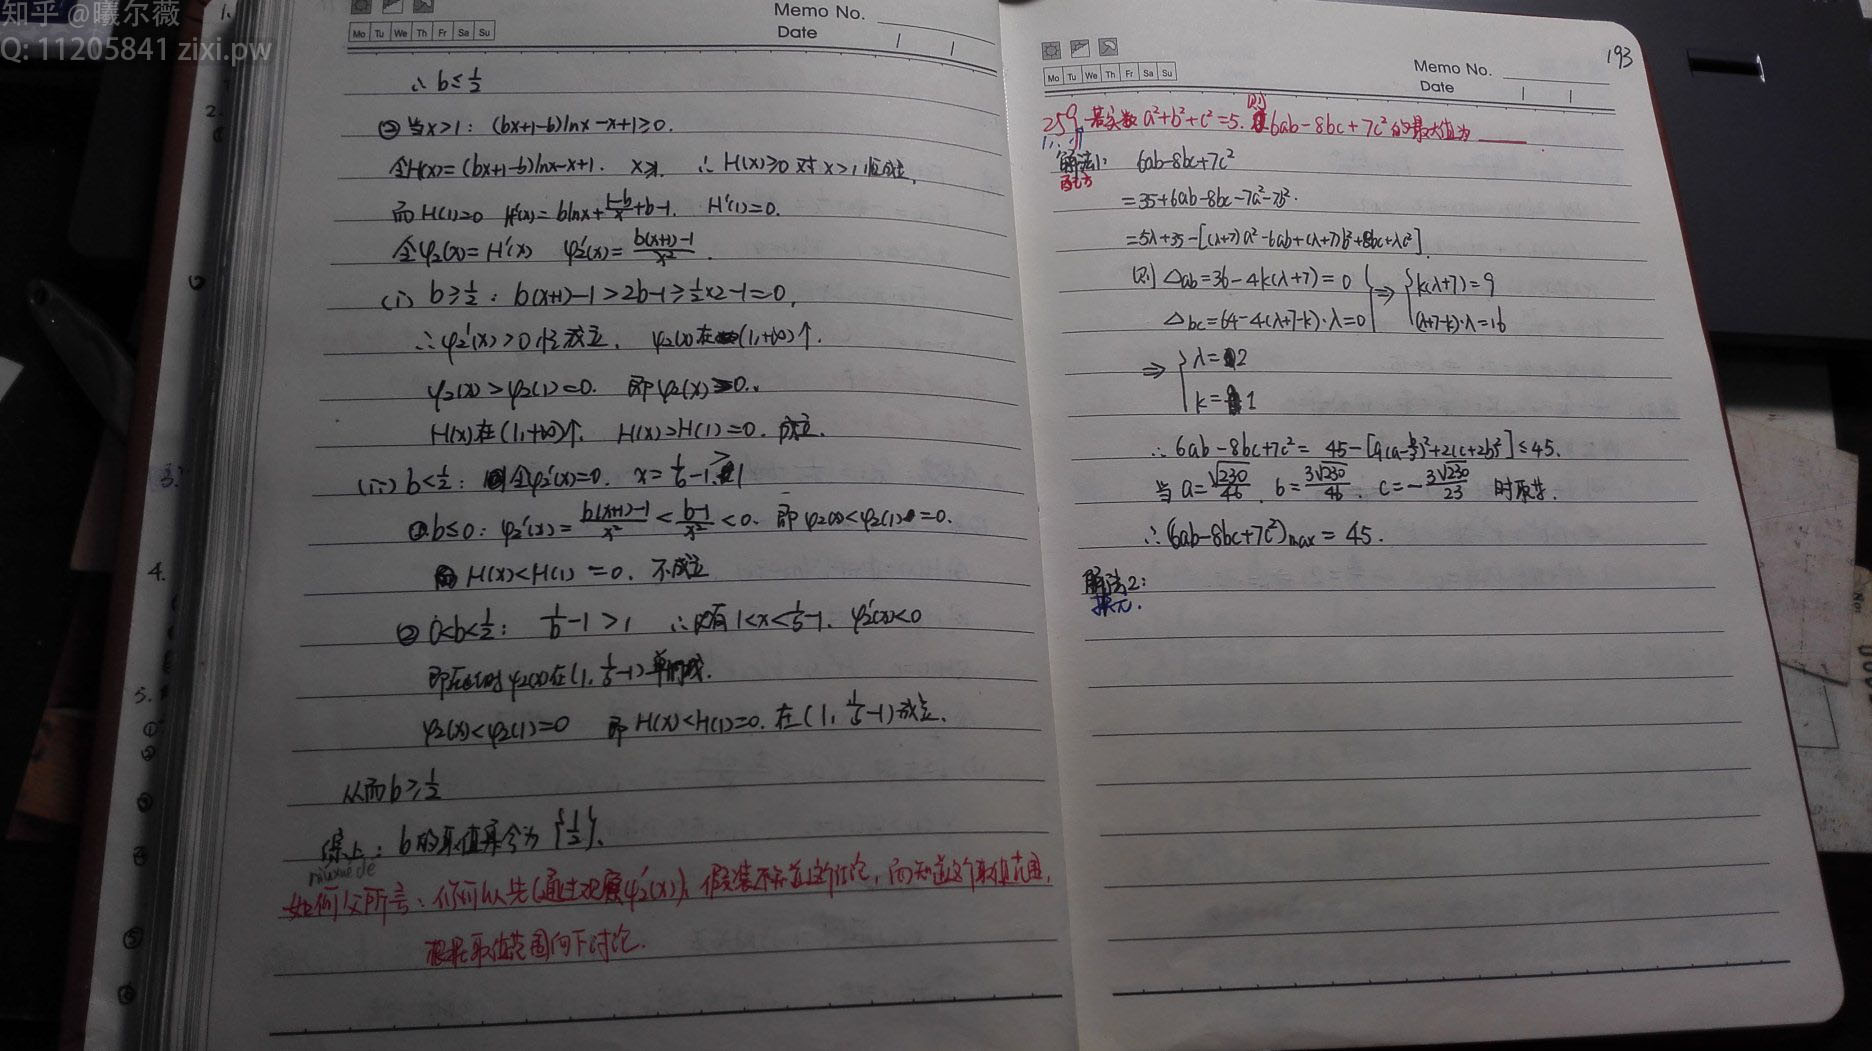 知乎 @曦尔薇
Q: 11205841 zixi.pw
Memo No.
Date
Mo Tu We Th Fr Sa Su
∴ b≤1/2
② 当x>1: (bx+1-b)lnx-x+1≥0.
令H(x)=(bx+1-b)lnx-x+1. x≥1. ∴ H(x)≥0 对 x>1 恒成立,
而 H(1)=0 H'(x)=blnx+(1-b)/x+b-1. H'(1)=0.
令φ2(x)=H'(x) φ2'(x)=(b(x+1)-1)/x².
(i) b≥1/2: b(x+1)-1>2b-1≥1/2×2-1=0,
∴φ2'(x)>0恒成立, φ2(x)在(1,+∞)↑.
φ2(x)>φ2(1)=0. 即φ2(x)>0.
H(x)在(1,+∞)↑. H(x)>H(1)=0. 成立.
(ii) b<1/2: 令φ2'(x)=0. x=1/b-1>1
①b≤0: φ2'(x)=(b(x+1)-1)/x²<(b-1)/x²<0. 即φ2(x)<φ2(1)=0.
H(x)<H(1)=0. 不成立
② 0<b<1/2: 1/b-1>1 ∴ 有1<x<1/b-1. φ2'(x)<0
即在此时φ2(x)在(1,1/b-1)单减.
φ2(x)<φ2(1)=0 即H(x)<H(1)=0. 在(1,1/b-1)成立.
从而b≥1/2
综上: b的取值集合为{1/2}.
根据取值范围向下讨论.
193
Memo No.
Date
Mo Tu We Th Fr Sa Su
259 若实数a²+b²+c²=5. 则6ab-8bc+7c²的最大值为
解法1: 6ab-8bc+7c²
配方
=35+6ab-8bc-7a²-7b².
=5λ+35-[(λ+7)a²-6ab+(λ+7)b²+8bc+λc²]
则 Δab=36-4k(λ+7)=0 ⇒ k(λ+7)=9
Δbc=64-4(λ+7-k)·λ=0 (λ+7-k)·λ=16
⇒ λ=2
k=1
∴ 6ab-8bc+7c²=45-[9(a-b/3)²+2(c+2b)²]≤45.
当a=√230/46, b=3√230/46, c=-3√230/23 时取.
∴(6ab-8bc+7c²)max=45.
解法2:
换元.